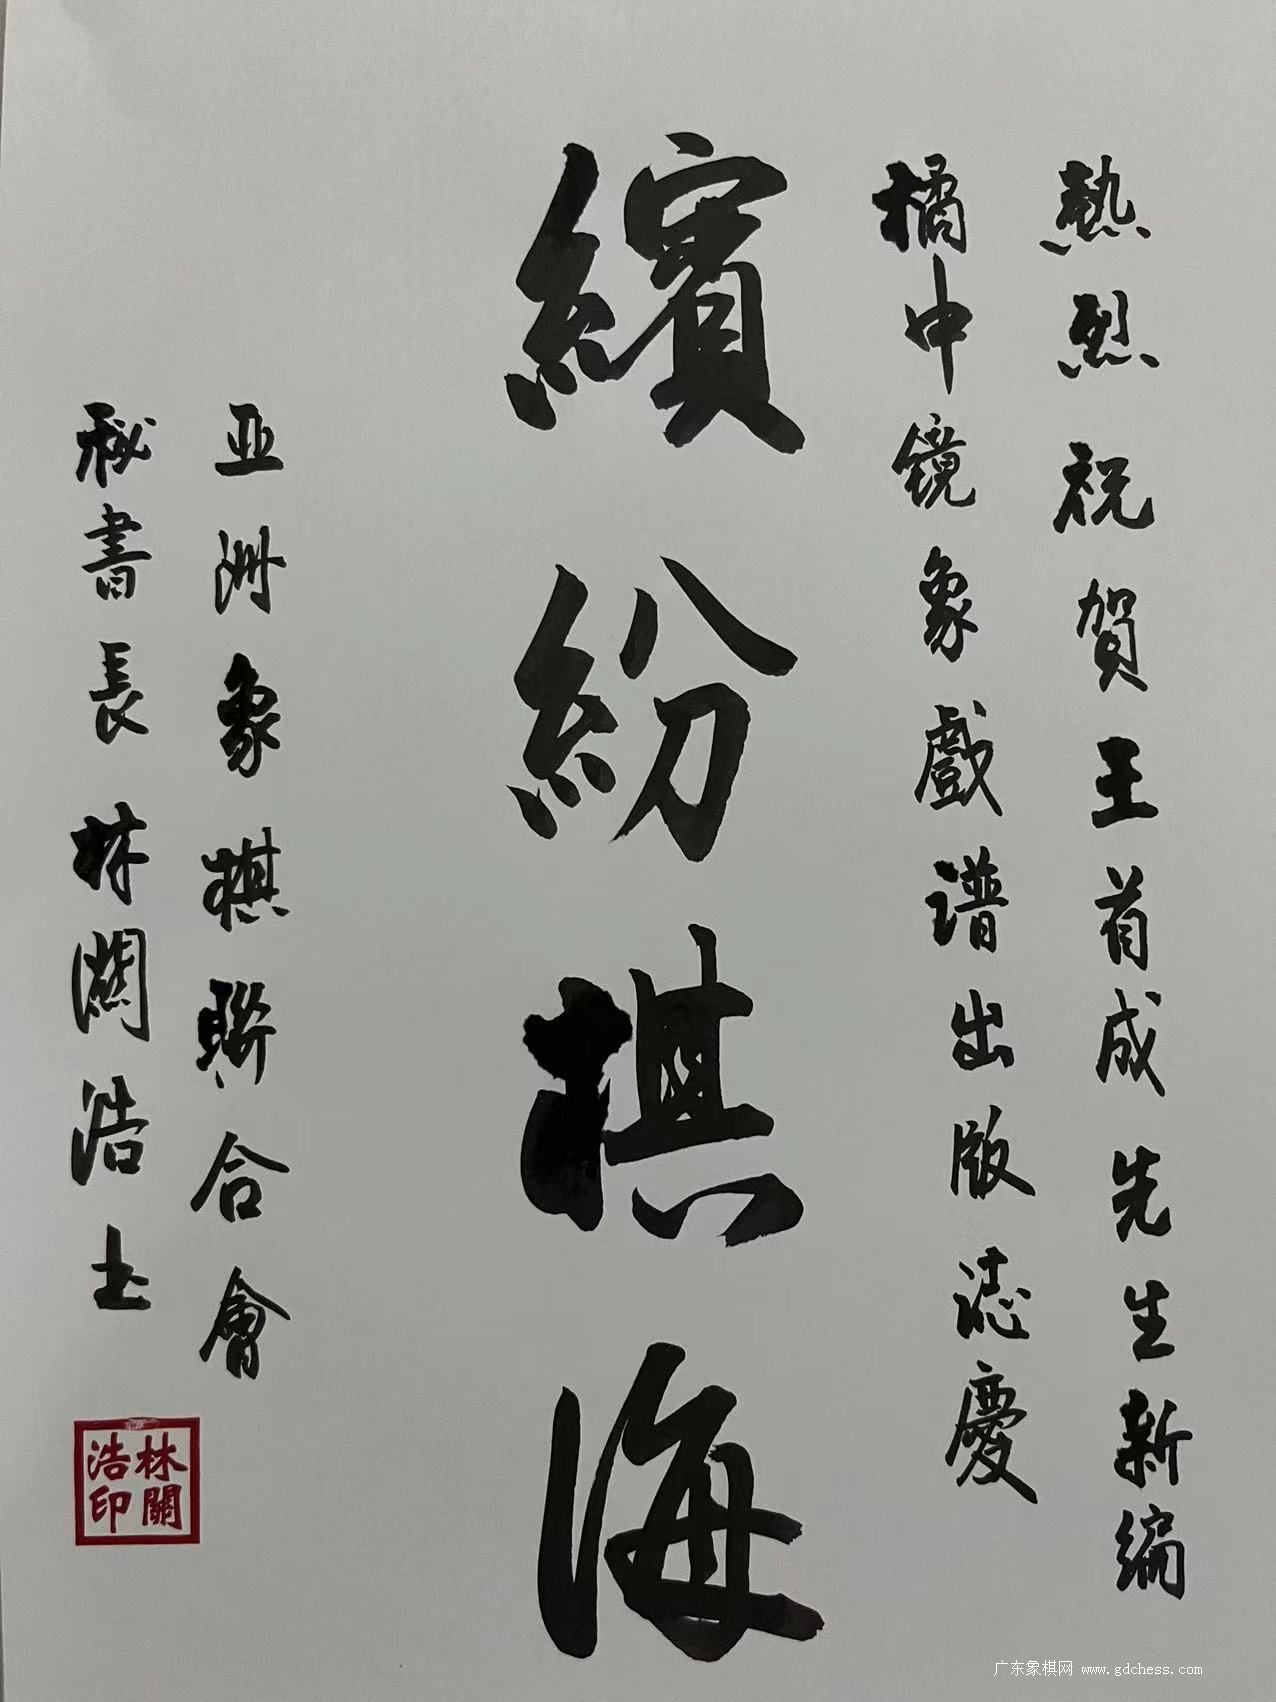 熱烈祝賀王首成先生新編
橘中鏡象戲譜出版誌慶
繽紛棋海
亞洲象棋聯合會
秘書長林關浩
林關浩印
广东象棋网 www.gdchess.com